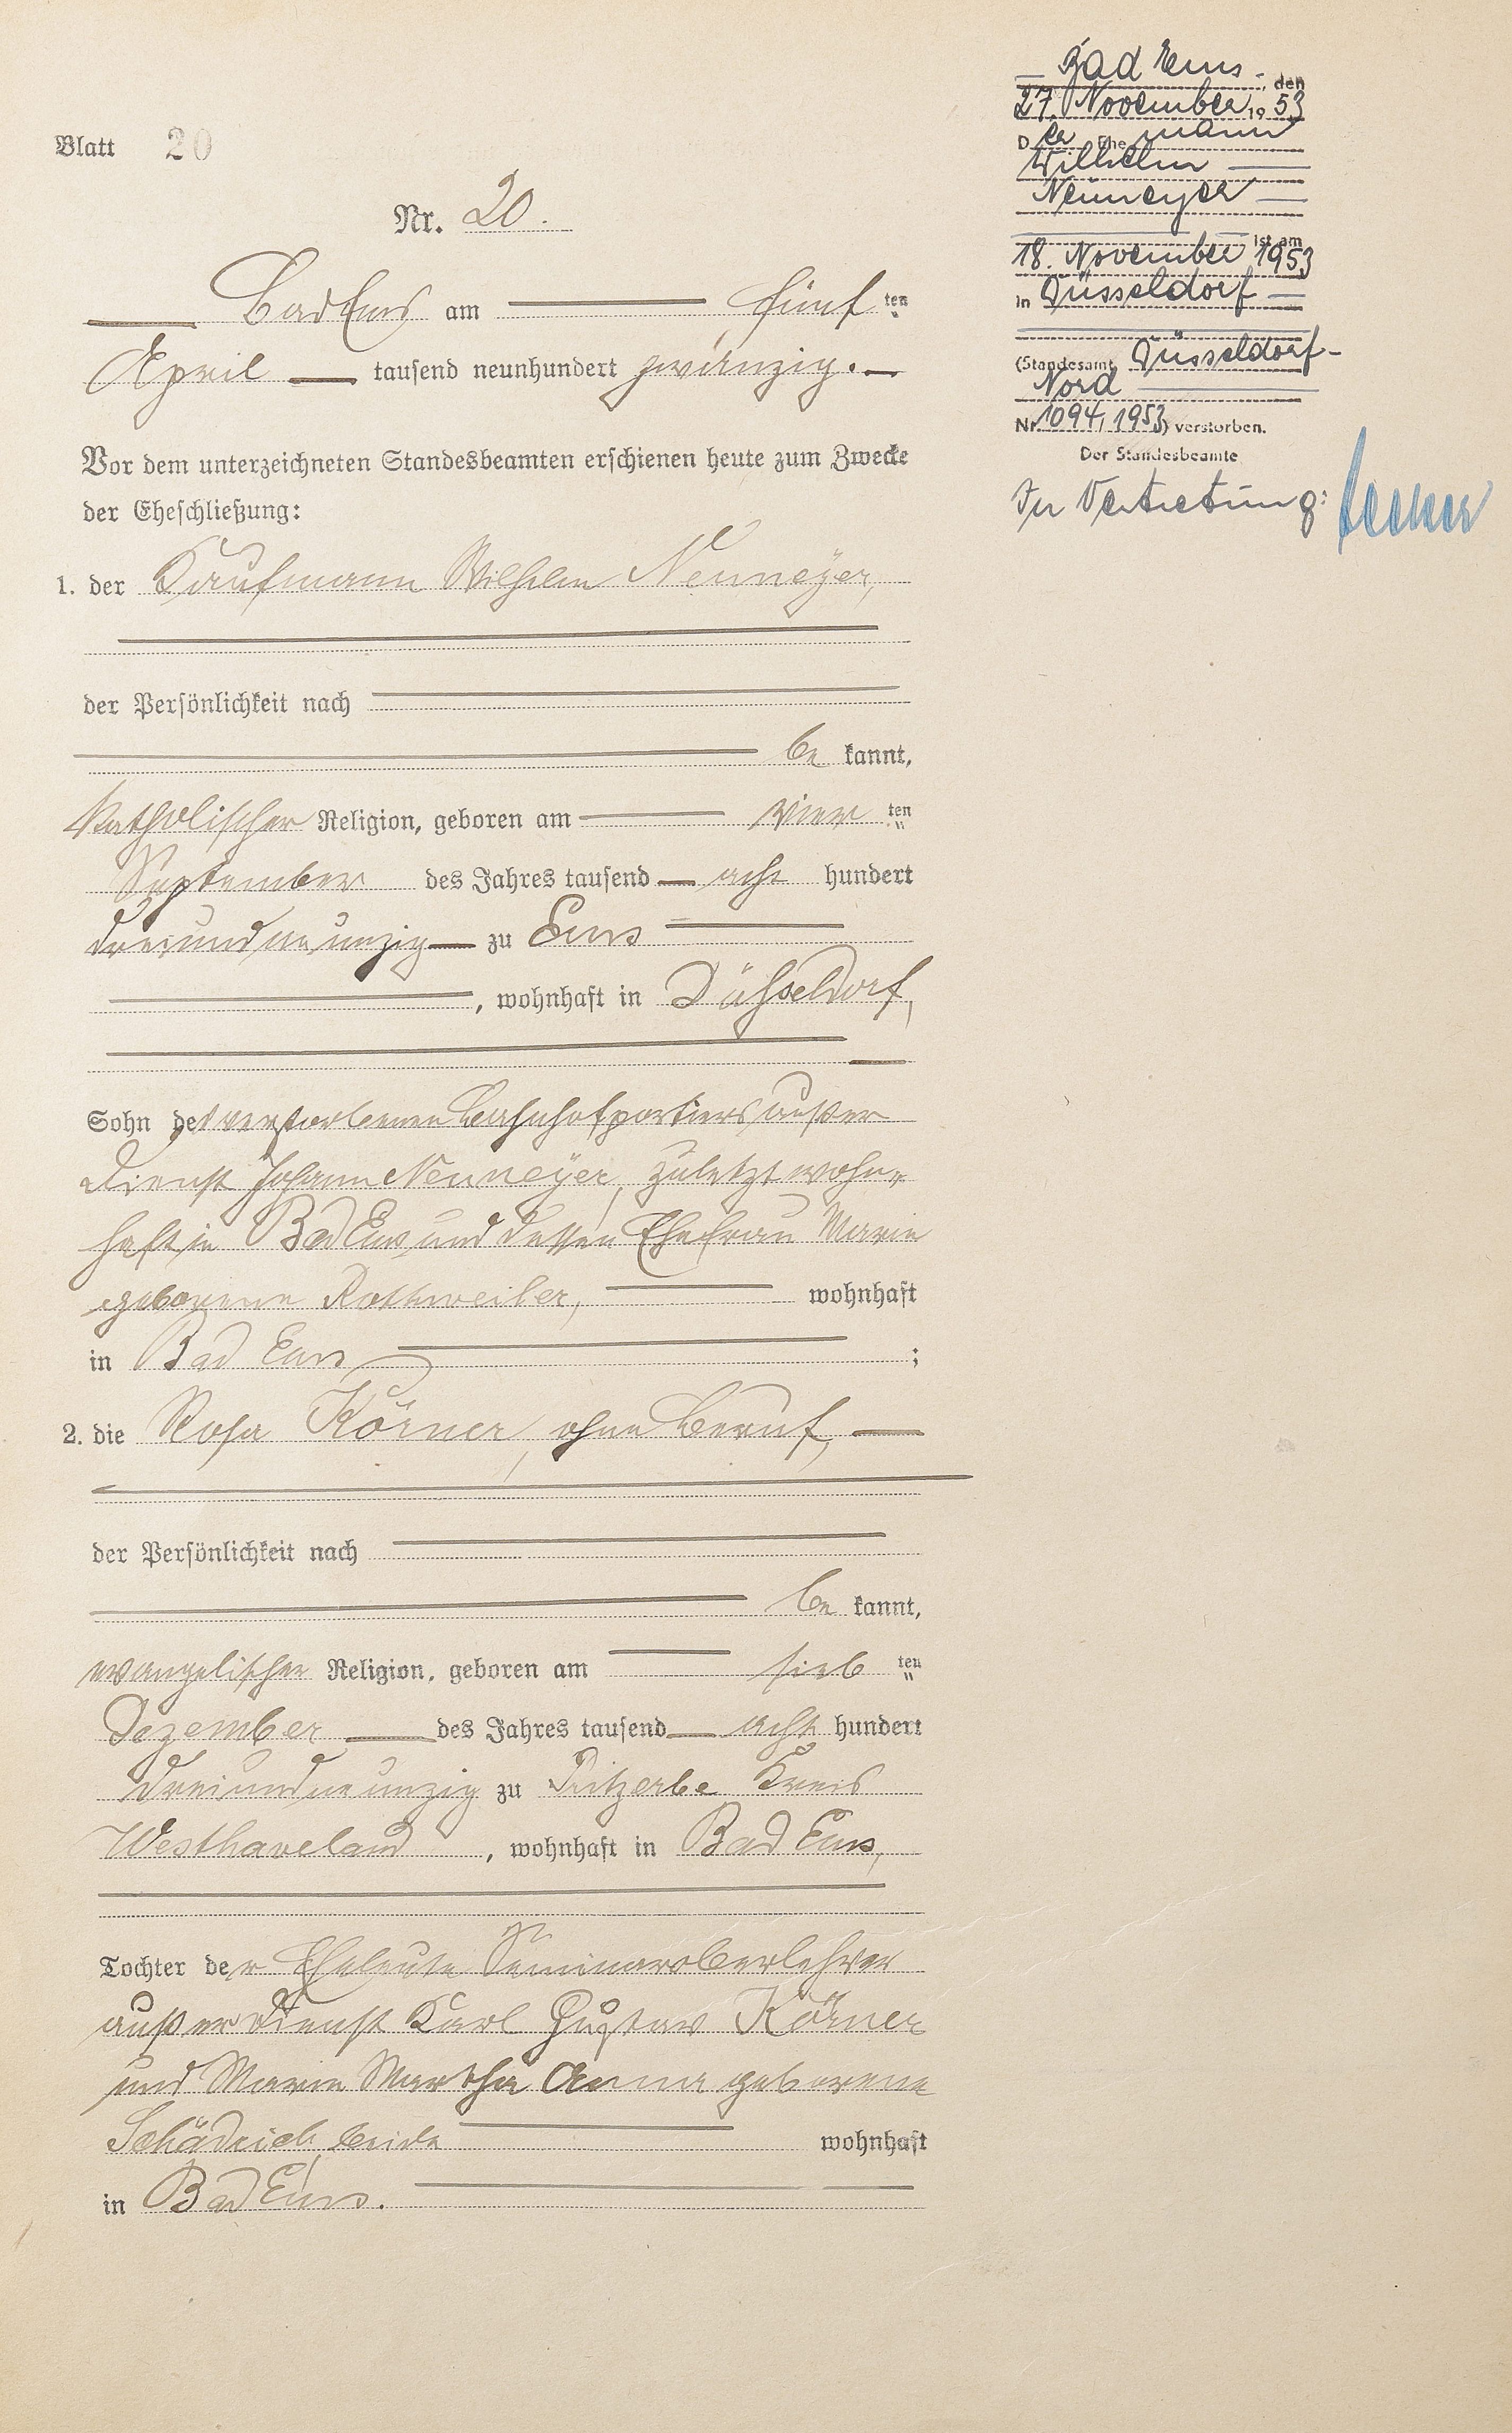 Blatt 20
Nr. 20.
Bad Ems am fünf ten
April tausend neunhundert zwanzig.
Vor dem unterzeichneten Standesbeamten erschienen heute zum Zwecke
der Eheschließung:
1. der Kaufmann Wilhelm Neumeÿer,
der Persönlichkeit nach
be kannt,
katholischer Religion, geboren am vier ten
September des Jahres tausend acht hundert
dreiundneunzig zu Ems
, wohnhaft in Düsseldorf,
Sohn des verstorbenen Bahnhofportiers außer
Dienst Johann Neumeÿer, zuletzt wohn-
haft in Bad Ems, und dessen Ehefrau Marie
geborene Rothweiler, wohnhaft
in Bad Ems ;
2. die Rosa Körner, ohne Beruf,
der Persönlichkeit nach
be kannt,
evangelischer Religion, geboren am sieb ten
Dezember des Jahres tausend acht hundert
dreiundneunzig zu Pritzerbe Kreis
Westhaveland , wohnhaft in Bad Ems,
Tochter der Eheleute Seminaroberlehrer
außer Dienst Karl Gustav Körner
und Marie Martha Anna geborene
Schädrich, beide wohnhaft
in Bad Ems.
Bad Ems, den
27. November 1953
Der Ehemann
Wilhelm
Neumeyer
ist am
18. November 1953
in Düsseldorf
(Standesamt Düsseldorf-
Nord
Nr. 1094/1953) verstorben.
Der Standesbeamte
In Vertretung: